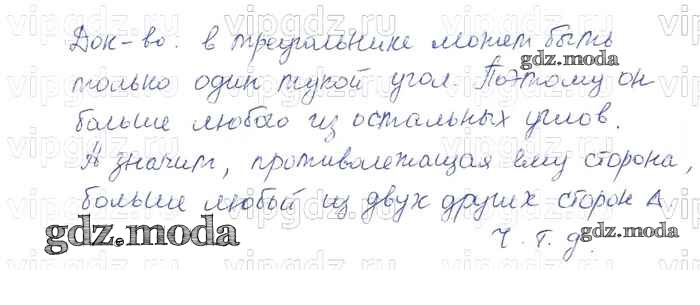 Док-во. в треугольнике может быть
только один тупой угол. Поэтому он
больше любого из остальных углов.
А значит, противолежащая ему сторона,
больше любый из двух других сторон Δ.
ч. т. д.
gdz.moda
gdz.moda
gdz.moda
gdz.moda
vipgdz.ru